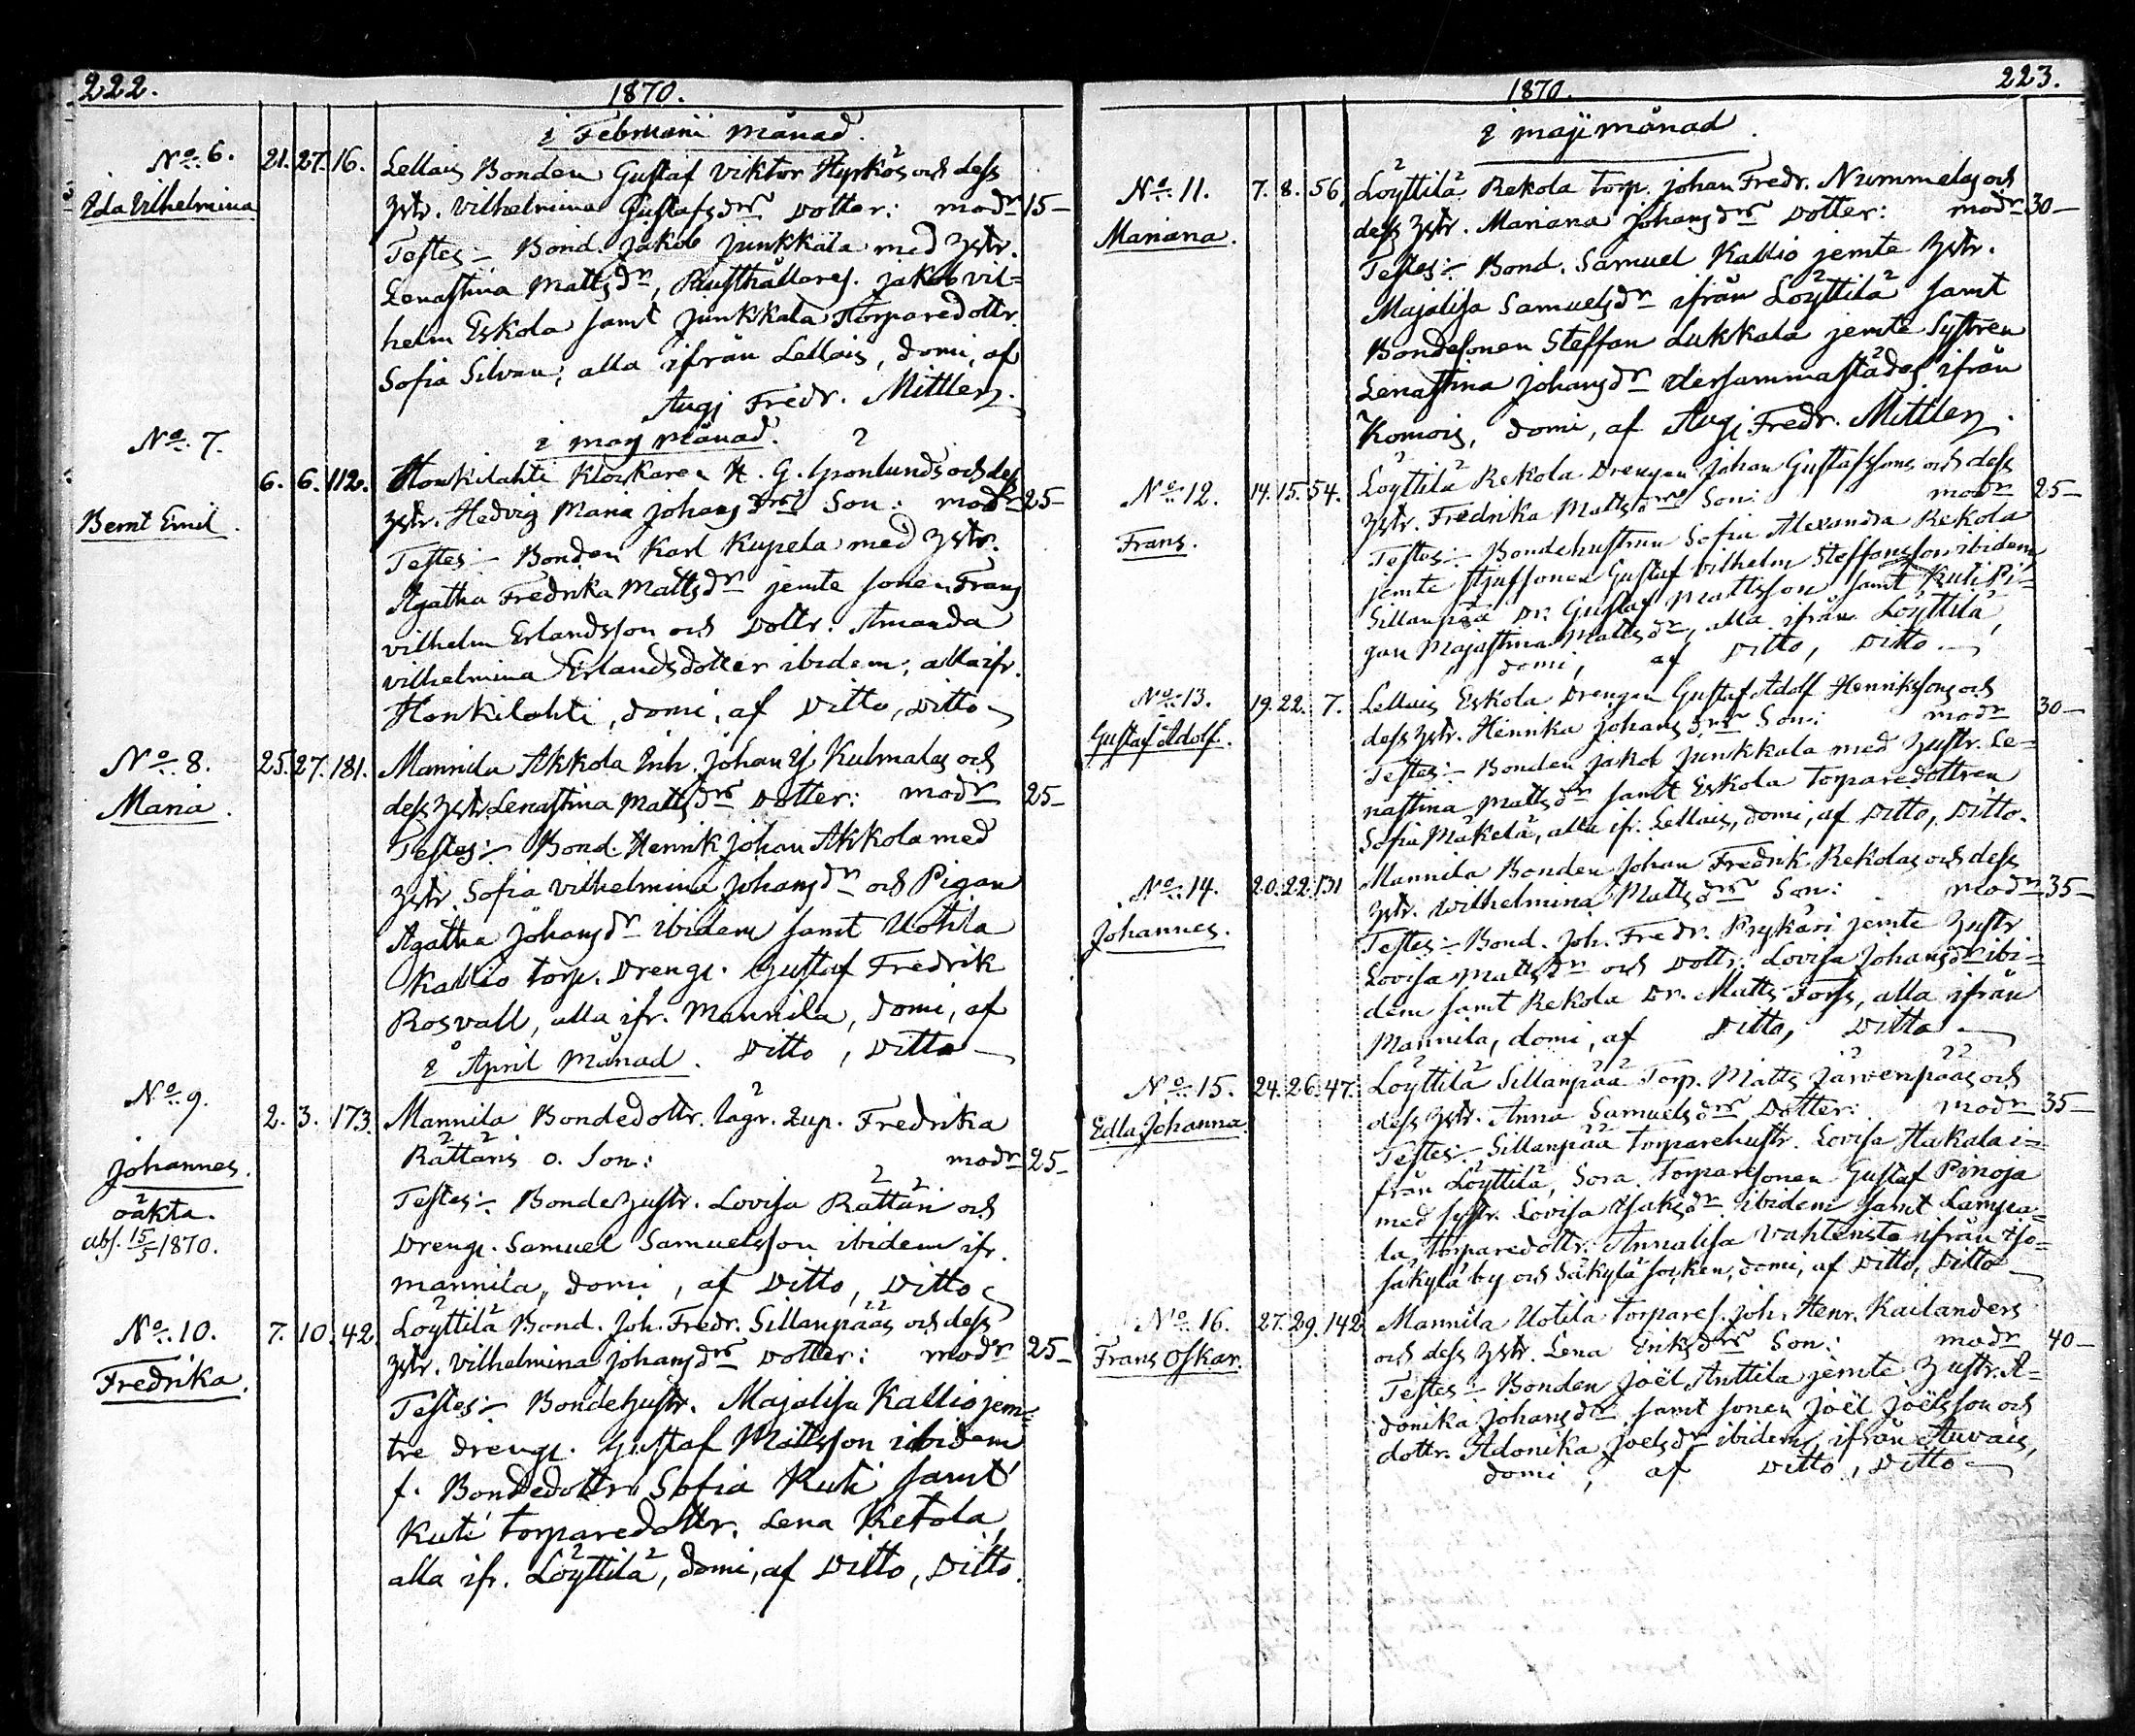 222.
1870.
i Februarii månad.
No. 6. 21. 27. 16. Lellais Bonden Gustaf Viktor Hyrkös och dess
Ida Vilhelmina hstr. Vilhelmina Gustafsdrs dotter: modr 15–
Testes:– Bond. Jakob Junkkala med hstr.
Lenastina Mattsdr, Rusthållares. Jakob Vil=
helm Eskola samt Junkkala Torparedottr.
Sofia Silvan; alla ifrån Lellais, domi, af
Augj Fredr. Mittler.
No. 7. i Marj månad.
6. 6. 112. Honkilahti Klockaren K. G. Grönlunds och dess
Bernt Emil. hstr. Hedvig Maria Johansdrs Son: modr 25–
Testes:– Bonden Karl Kupela med hstr.
Agatha Fredrika Mattsdr jemte sonen Frans
Vilhelm Erlandsson och Dottr. Amanda
Vilhelmina Erlandsdotter ibidem; alla ifr.
Honkilahti, domi, af Ditto, Ditto
No. 8. 25. 27. 181. Mannila Akkola Inh. Johan Kulmalas och
Maria. dess hstr. Lenastina Mattsdrs Dotter: modr 25–
Testes:– Bond. Henrik Johan Akkola med
hstr. Sofia Vilhelmina Johansdr och Pigan
Agatha Johansdr ibidem samt Uotila
Kallio torp. Drengr. Gustaf Fredrik
Rosvall, alla ifr. Mannila, domi, af
i April Månad. Ditto, Ditto
No. 9. 2. 3. 173. Mannila Bondedottr. lägr. Fredrika
Johannes. Rättäris o. Son: modr 25–
oäkta. Testes:– Bondehustr. Lovisa Rättäri och
abs. 15/5 1870. Drengr. Samuel Samuelsson ibidem ifr.
Mannila, domi, af Ditto, Ditto
No. 10. 7. 10. 42. Löyttilä Bond. Joh. Fredr. Sillanpääs och dess
Fredrika. hstr. Vilhelmina Johansdrs Dotter: modr 25–
Testes:– Bondehustr. Majalisa Kallio jem=
te drengr. Gustaf Mattsson ibidem
f. Bondedottr. Sofia Kuti samt
Kuti torparedottr. Lena Ketola,
alla ifr. Löyttilä, domi, af Ditto, Ditto.
1870.
223.
i Maji månad.
No. 11. 7. 8. 56. Löyttilä Rekola torp. Johan Fredr. Nummelas och
Mariana. dess hstr. Mariana Johansdrs Dotter: modr 30–
Testes:– Bond. Samuel Kallio jemte hstr.
Majalisa Samuelsdr ifrån Löyttilä samt
Bondesonen Steffan Lukkala jemte Systren
Lenastina Johansdr dersammastädes ifrån
Komois, domi, af Augj Fredr. Mittler.
No. 12. 14. 15. 54. Löyttilä Rekola Drengen Johan Gustafssons och dess
Frans. hstr. Fredrika Mattsdrs Son: modr 25–
Testes:– Bondehustrun Sofia Alexandra Rekola
jemte stjufsonen Gustaf Vilhelm Steffansson ibidem,
Sillanpää Dr. Gustaf Mattsson samt Kuti Pi=
gan Majastina Mattsdr, alla ifrån Löyttilä,
domi, af Ditto, Ditto.
No. 13. 19. 22. 7. Lellais Eskola Drengen Gustaf Adolf Henrikssons och
Gustaf Adolf. dess hstr. Henrika Johansdrs Son: modr 30–
Testes:– Bonden Jakob Junkkala med hustr. Le=
nastina Mattsdr samt Eskola Torparedottren
Sofia Mäkelä, alla ifr. Lellais, domi, af Ditto, Ditto.
No. 14. 20. 22. 131 Mannila Bonden Johan Fredrik Rekolas och dess
Johannes. hstr. Wilhelmina Mattsdrs Son: modr 35–
Testes:– Bond. Joh. Fredr. Prykäri jemte hustr
Lovisa Mattsdr och Dottr. Lovisa Johansdr ibi=
dem samt Rekola Dr. Matts Forss, alla ifrån
Mannila, domi, af Ditto, Ditto
No. 15. 24. 26. 47. Löyttilä Sillanpää Torp. Matts Järvenpääs och
Edla Johanna. dess hstr. Anna Samuelsdrs Dotter: modr 35–
Testes:– Sillanpää torparehustr. Lovisa Hakala i=
från Löyttilä, Sora torparesonen Gustaf Pinoja
med systr. Lovisa Isaksdr ibidem samt Lampa=
la Torparedottr. Annalisa Vahteristo ifrån Iso=
säkylä by och Säkylä socken, domi, af Ditto, Ditto
No. 16. 27. 29. 142. Mannila Uotila torpares. Joh. Henr. Kailanders
Frans Oskar. och dess hstr. Lena Eriksdrs Son: modr 40–
Testes:– Bonden Joël Anttila jemte hustr. A=
donika Johansdr samt sonen Joël Joëlsson och
dottr. Adonika Joelsdr ibidem, ifrån Auvais,
domi, af Ditto, Ditto